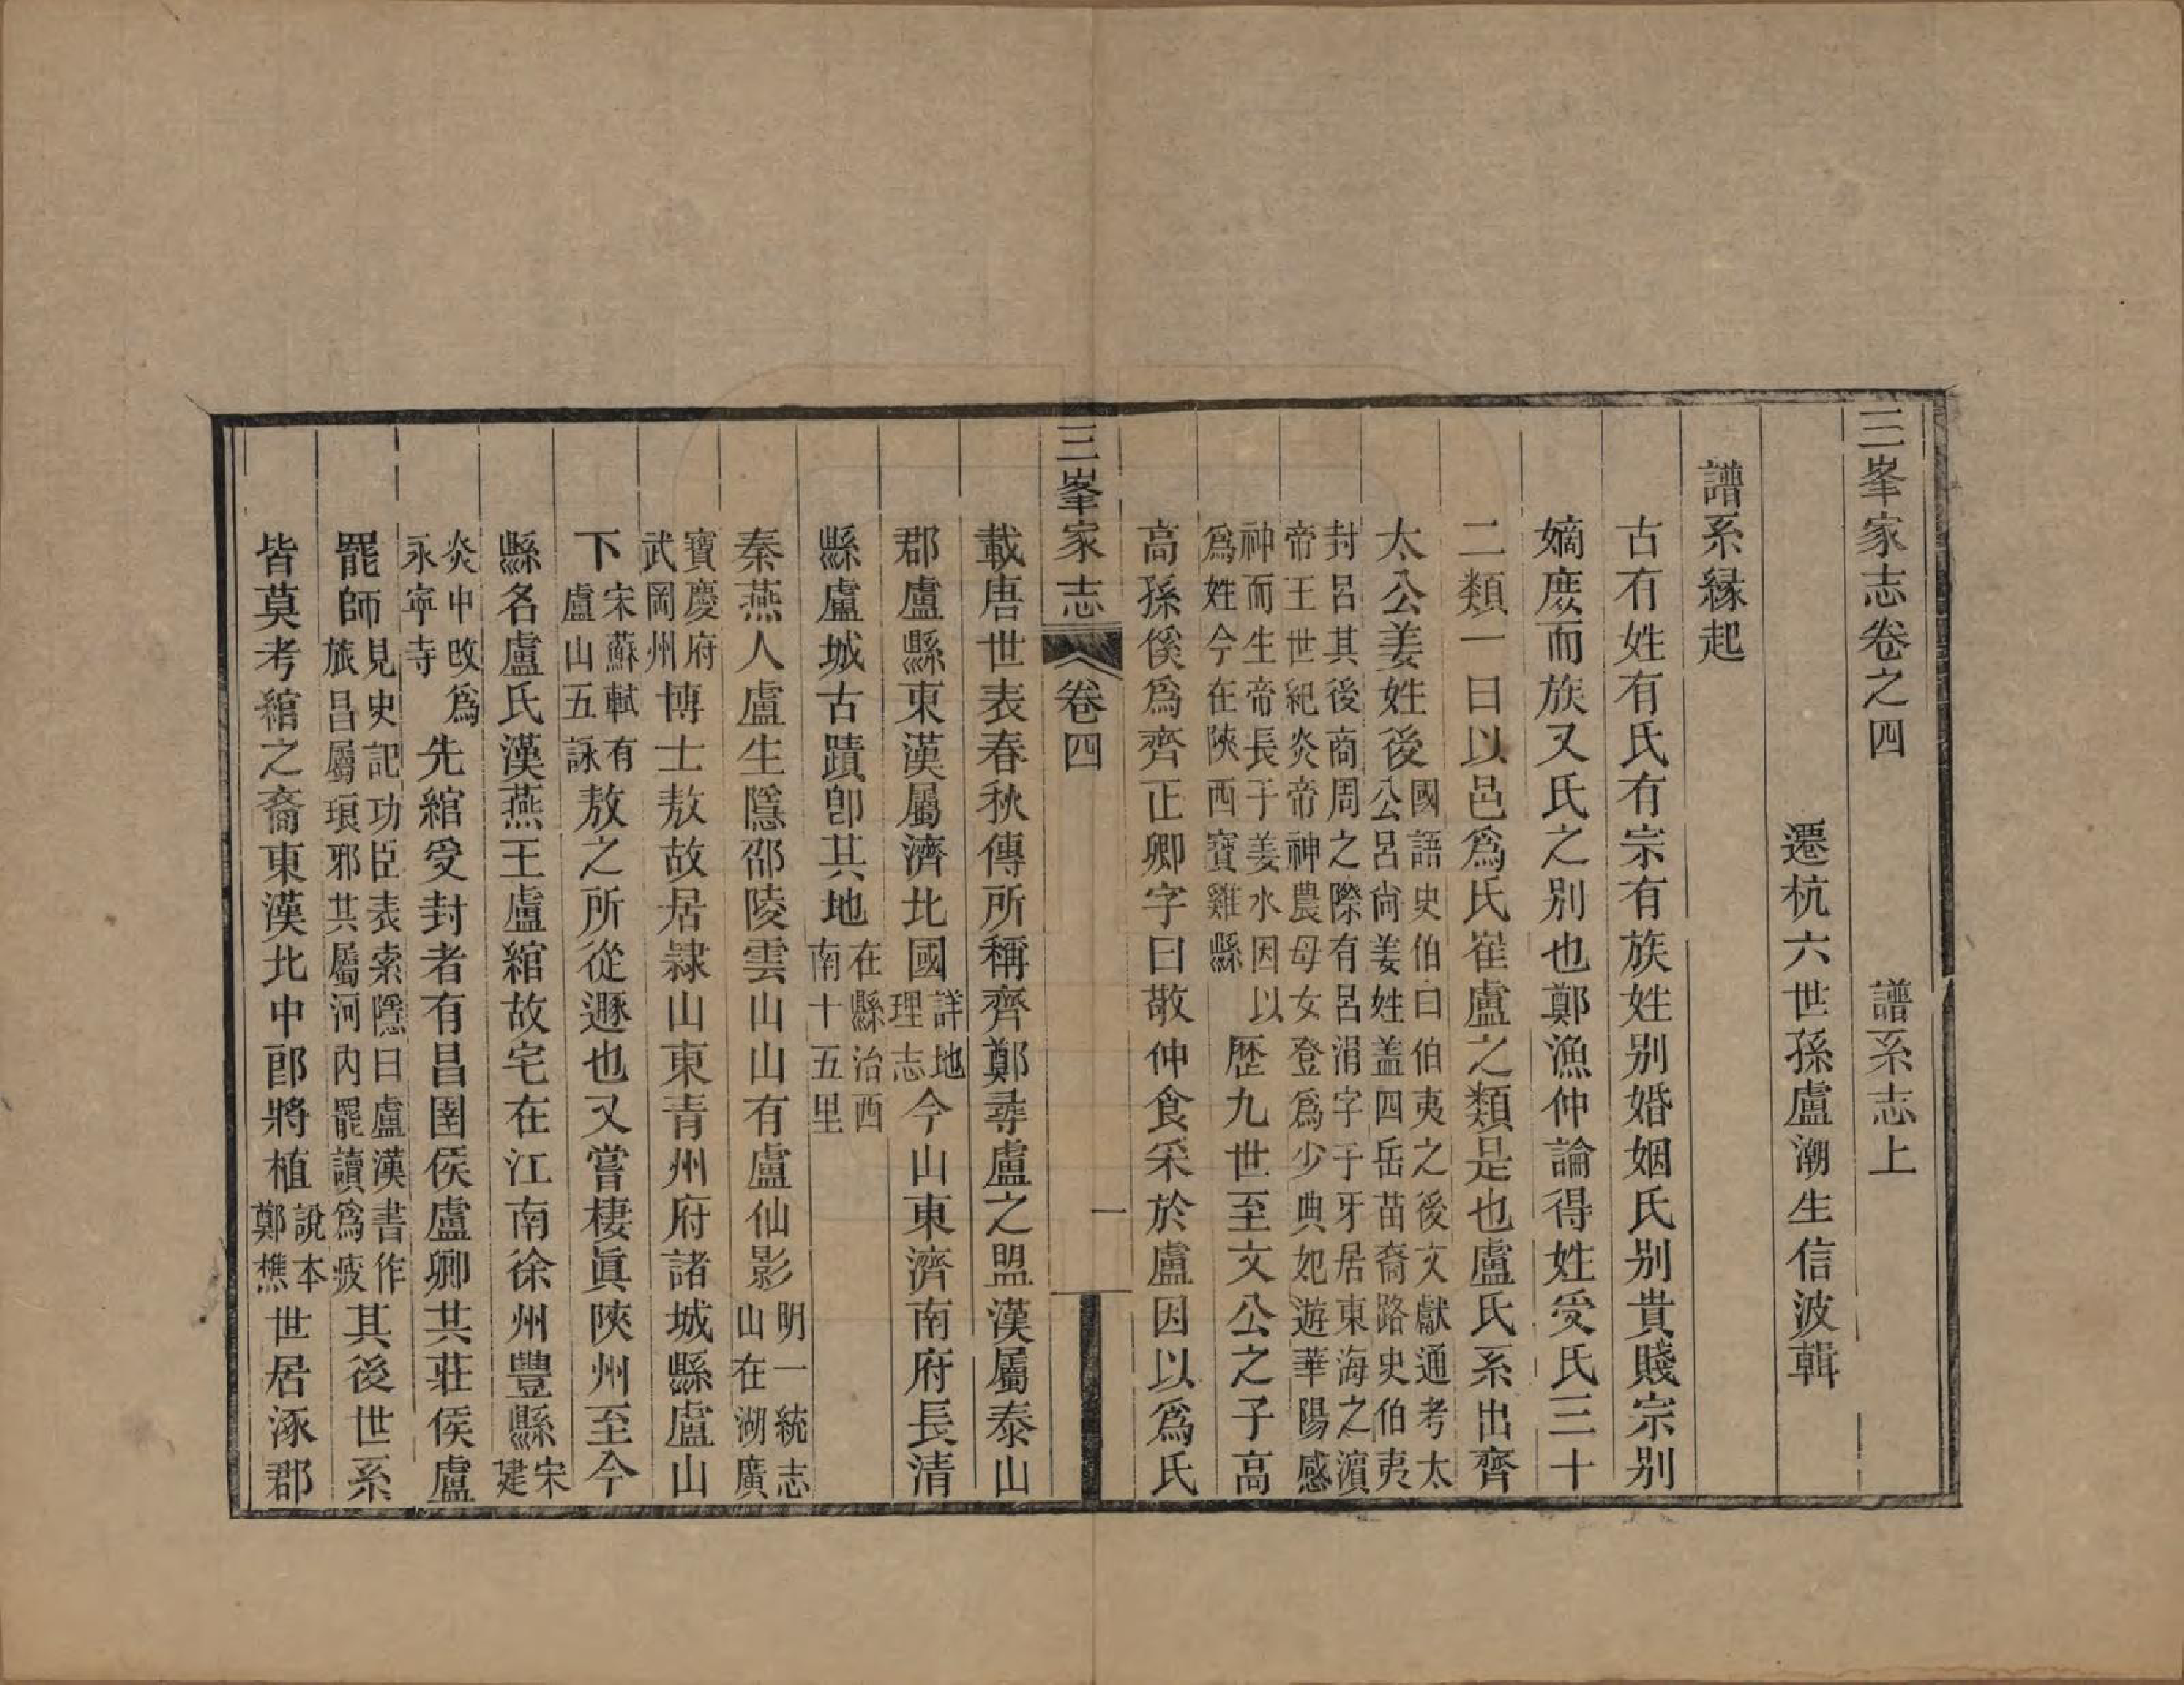 三峯家志卷之四　譜系志上
遷杭六世孫盧潮生信波輯
譜系緣起
古有姓有氏有宗有族姓別婚姻氏別貴賤宗別
嫡庶而族又氏之別也鄭漁仲論得姓受氏三十
二類一曰以邑爲氏崔盧之類是也盧氏系出齊
太公姜姓後國語史伯曰伯夷之後文獻通考太公呂尙姜姓葢四岳苗裔路史伯夷
封呂其後商周之際有呂涓字子牙居東海之濵帝王世紀炎帝神農母女登爲少典妃遊華陽感
神而生帝長于姜水因以爲姓今在陝西寶雞縣歷九世至文公之子高
高孫傒爲齊正卿字曰敬仲食采於盧因以爲氏
三峯家志　卷四　一
載唐世表春秋傳所稱齊鄭尋盧之盟漢屬泰山
郡盧縣東漢屬濟北國詳地理志今山東濟南府長清
縣盧城古蹟卽其地在縣治西南十五里
秦燕人盧生隱邵陵雲山山有盧仙影明一統志山在湖廣
寶慶府武岡州博士敖故居隷山東青州府諸城縣盧山
下宋蘇軾有盧山五詠敖之所從遯也又嘗棲眞陝州至今
縣名盧氏漢燕王盧綰故宅在江南徐州豐縣宋建
炎中改爲永寧寺先綰受封者有昌圉侯盧卿共莊侯盧
罷師見史記功臣表索隱曰盧漢書作旅昌屬琅邪其屬河內罷讀爲疲其後世系
皆莫考綰之裔東漢北中郎將植說本鄭樵世居涿郡